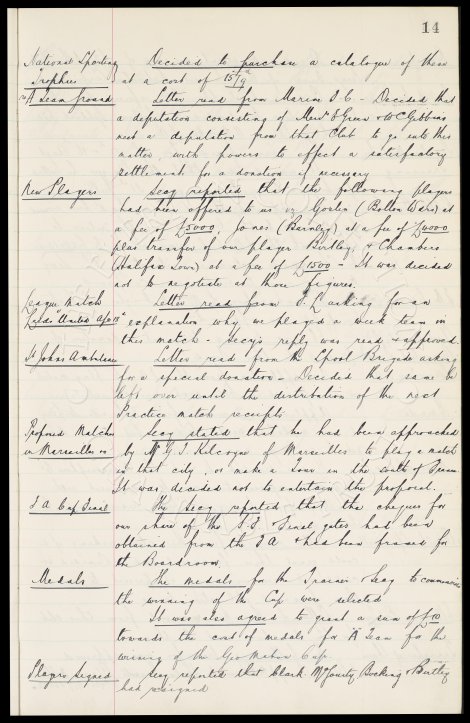 14
National Sporting Trophies
Decided to purchase a catalogue of these
at a cost of 15/9
"A" Team Ground
Letter read from Marine F.C - Decided that
a deputation consisting of Messrs Green & W C Gibbins
meet a deputation from that Club to go into this
matter, with powers to effect a satisfactory
settlement for a donation if necessary
New Players
Secy reported that the following players
had been offered to us viz Goslin (Bolton Wand) at
a fee of £5000, Jones (Barnsley) at a fee of £4000
plus transfer of our player Bentley, & Chambers
(Halifax Town) at a fee of £1500 - It was decided
not to negotiate at these figures.
League Match
Leeds United
Letter read from F.L asking for an
explanation why we played a weak team in
this match - Secy's reply was read & approved.
St Johns Ambulance
Letter read from the Lpool Brigade asking
for a special donation - Decided that same be
left over until the distribution of the next
Practice match receipts
Proposed Matches
in Marseilles
Secy stated that he had been approached
by Mr G.F. Kilcoyne of Marseilles to play a match
in that city, or make a Tour in the South of France.
It was decided not to entertain the proposal.
F A Cup Final
The Secy reported that the cheques for
our share of the Final gates had been
obtained from the F A & had been framed for
the Boardroom
Medals
The medals for the Trainer & Secy to commemorate
the winning of the Cup were selected
It was also agreed to grant a sum of
towards the cost of medals for "A" Team for the
winning of the Geo Mahon Cup.
Players Signed
Secy reported that Clark McGourty Bocking & Bentley
had resigned